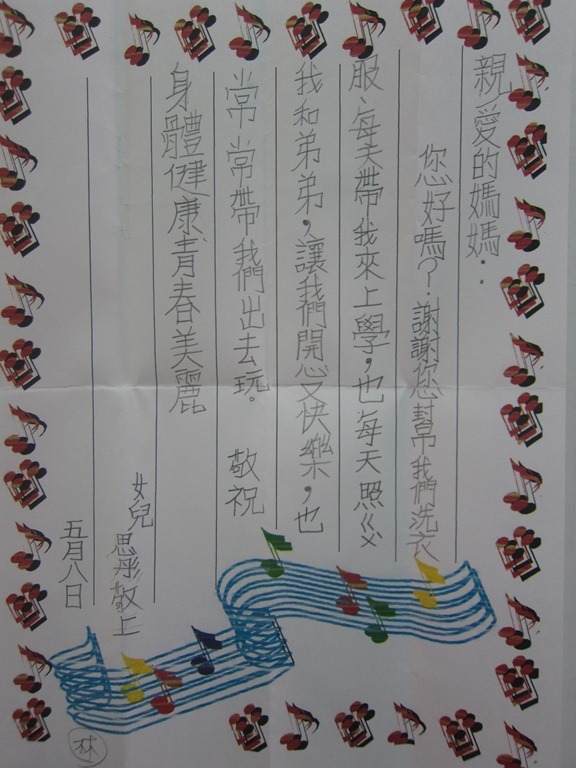 親愛的媽媽：
您好嗎？謝謝您幫我們洗衣
服、每天帶我來上學，也每天照ㄍㄨ
我和弟弟，讓我們開心又快樂，也
常常帶我們出去玩。 敬祝
身體健康青春美麗
女兒 思彤敬上
五月八日
林